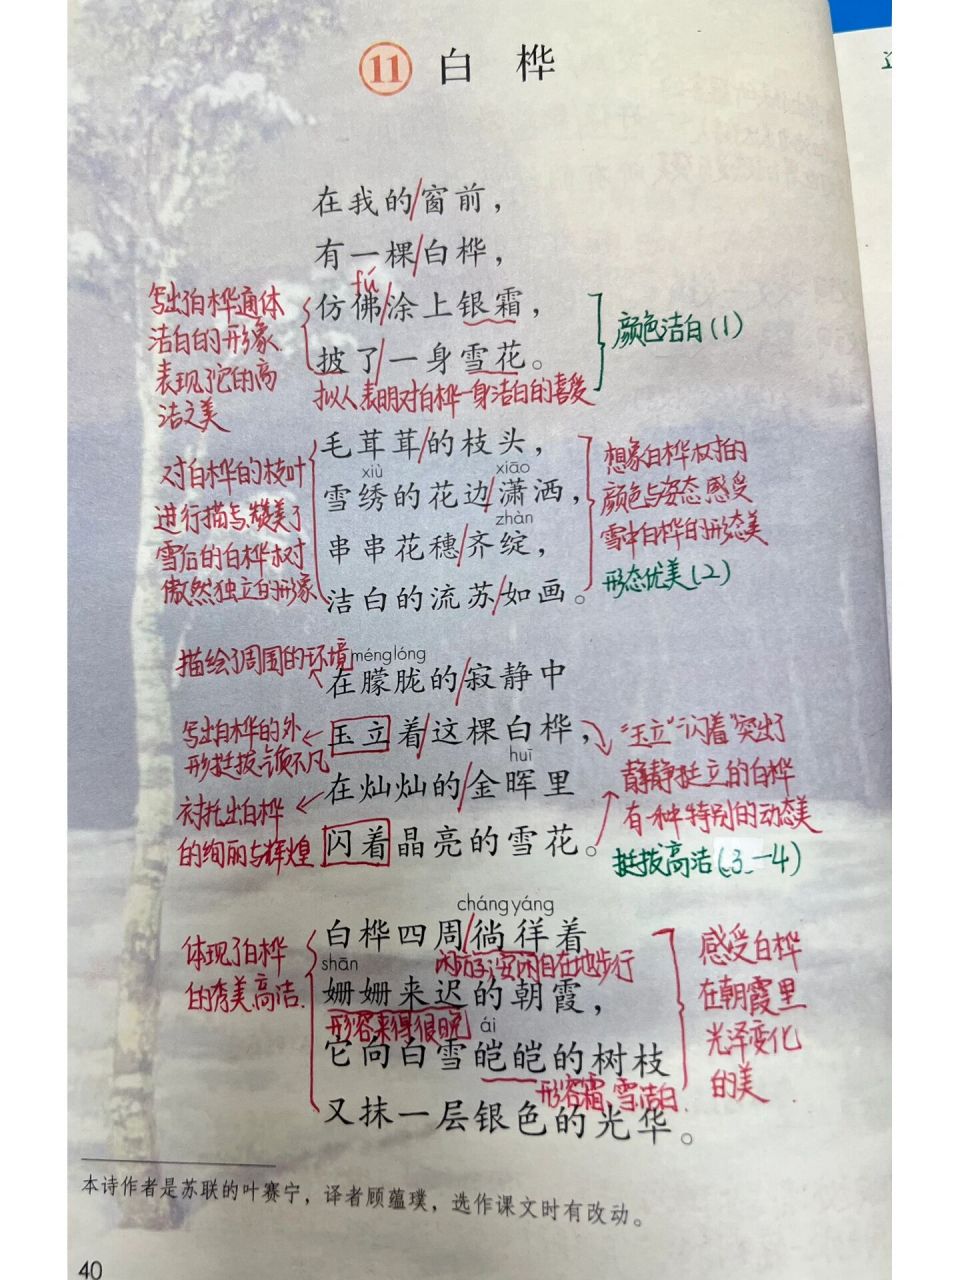 11 白桦
在我的/窗前，
有一棵/白桦，
fú
仿佛/涂上银霜，
披了/一身雪花。
写出了白桦通体
洁白的形象
表现了它的高
洁之美
拟人表明对白桦一身洁白的喜爱
颜色洁白(1)
毛茸茸/的枝头，
xiù xiāo
雪绣的花边/潇洒，
zhàn
串串花穗/齐绽，
洁白的流苏/如画。
对白桦的枝叶
进行描写,赞美了
雪后的白桦树
傲然独立的形象
想象白桦树的
颜色与姿态,感受
雪中白桦的形态美
形态优美(2)
描绘了周围的环境
ménglóng
在朦胧的/寂静中
玉立着/这棵白桦，
huī
在灿灿的/金晖里
闪着晶亮的雪花。
写出白桦的外
形挺拔,气质不凡
衬托出白桦
的绚丽与辉煌
"玉立""闪着"突出了
静静挺立的白桦
有一种特别的动态美
挺拔高洁(3-4)
cháng yáng
白桦四周/徜徉着
闲游;安闲自在地步行
shān
姗姗来迟的朝霞，
形容来得很晚
ái
它向白雪皑皑的树枝
形容霜、雪洁白
又抹一层银色的光华。
体现了白桦
的秀美、高洁.
感受白桦
在朝霞里
光泽变化
的美
本诗作者是苏联的叶赛宁，译者顾蕴璞，选作课文时有改动。
40